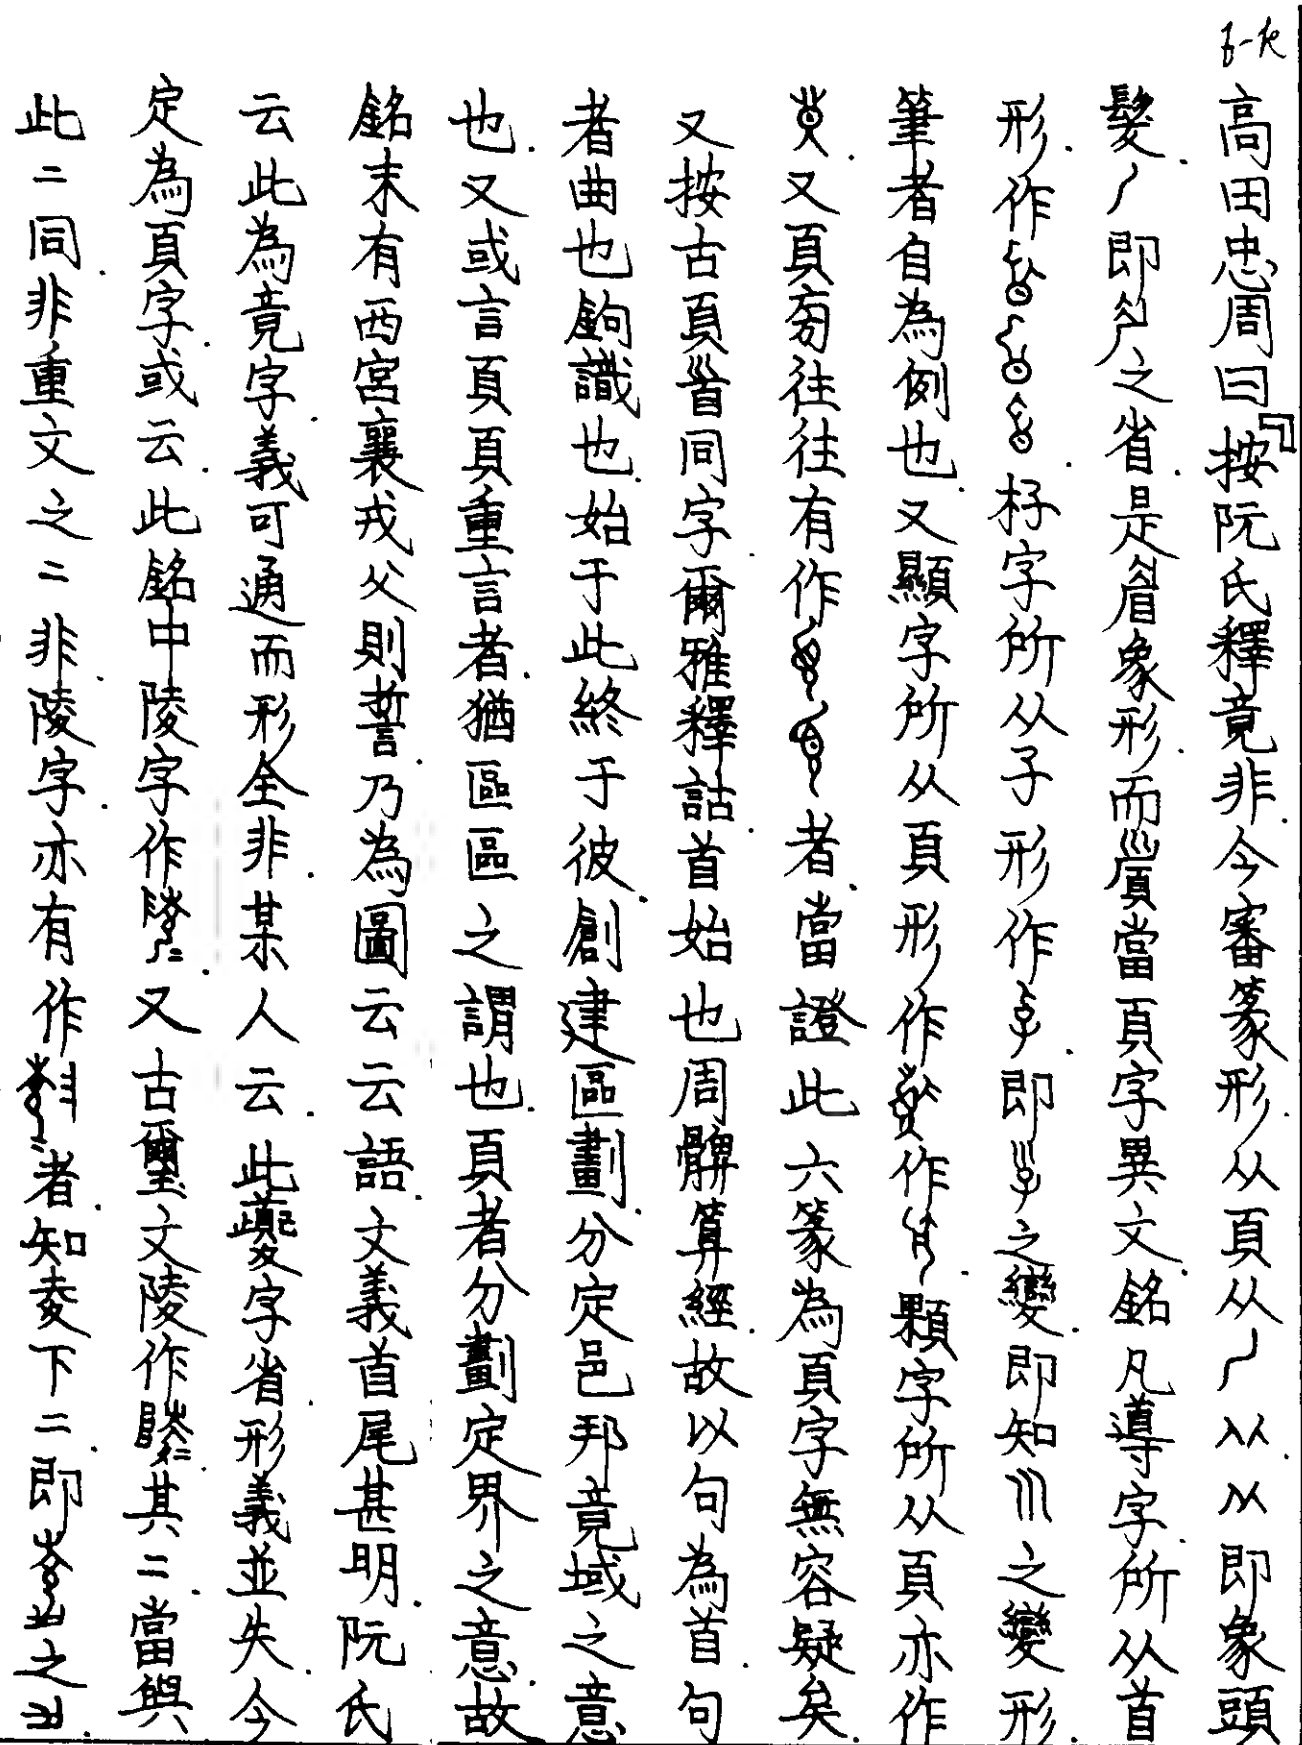 高田忠周曰『按阮氏釋竟非.今審篆形.从頁从从从.即象頭
髮.即之省.是眉象形.而當頁字異文.銘凡導字.所从首
形.作.杍字所从子形作.即之變.即知巛之變形
筆者自為例也.又顯字所从頁形作作.顆字所从頁亦作
.又頁旁往往有作者.當證此六篆為頁字無容疑矣
又按古頁首同字.爾雅釋詁.首始也周髀算經.故以句為首.句
者曲也鉤識也.始于此終于彼.創建區劃.分定邑邦竟域之意
也.又或言頁頁重言者.猶區區之謂也.頁者分劃定界之意.故
銘末有西宮襄戎父則誓乃為圖云云語.文義首尾甚明.阮氏
云此為竟字.義可通而形全非.某人云.此夔字省.形義並失.今
定為頁字.或云.此銘中陵字作.又古璽文陵作其二.當與
此二同.非重文之二.非陵字.亦有作者.知夌下二.即之